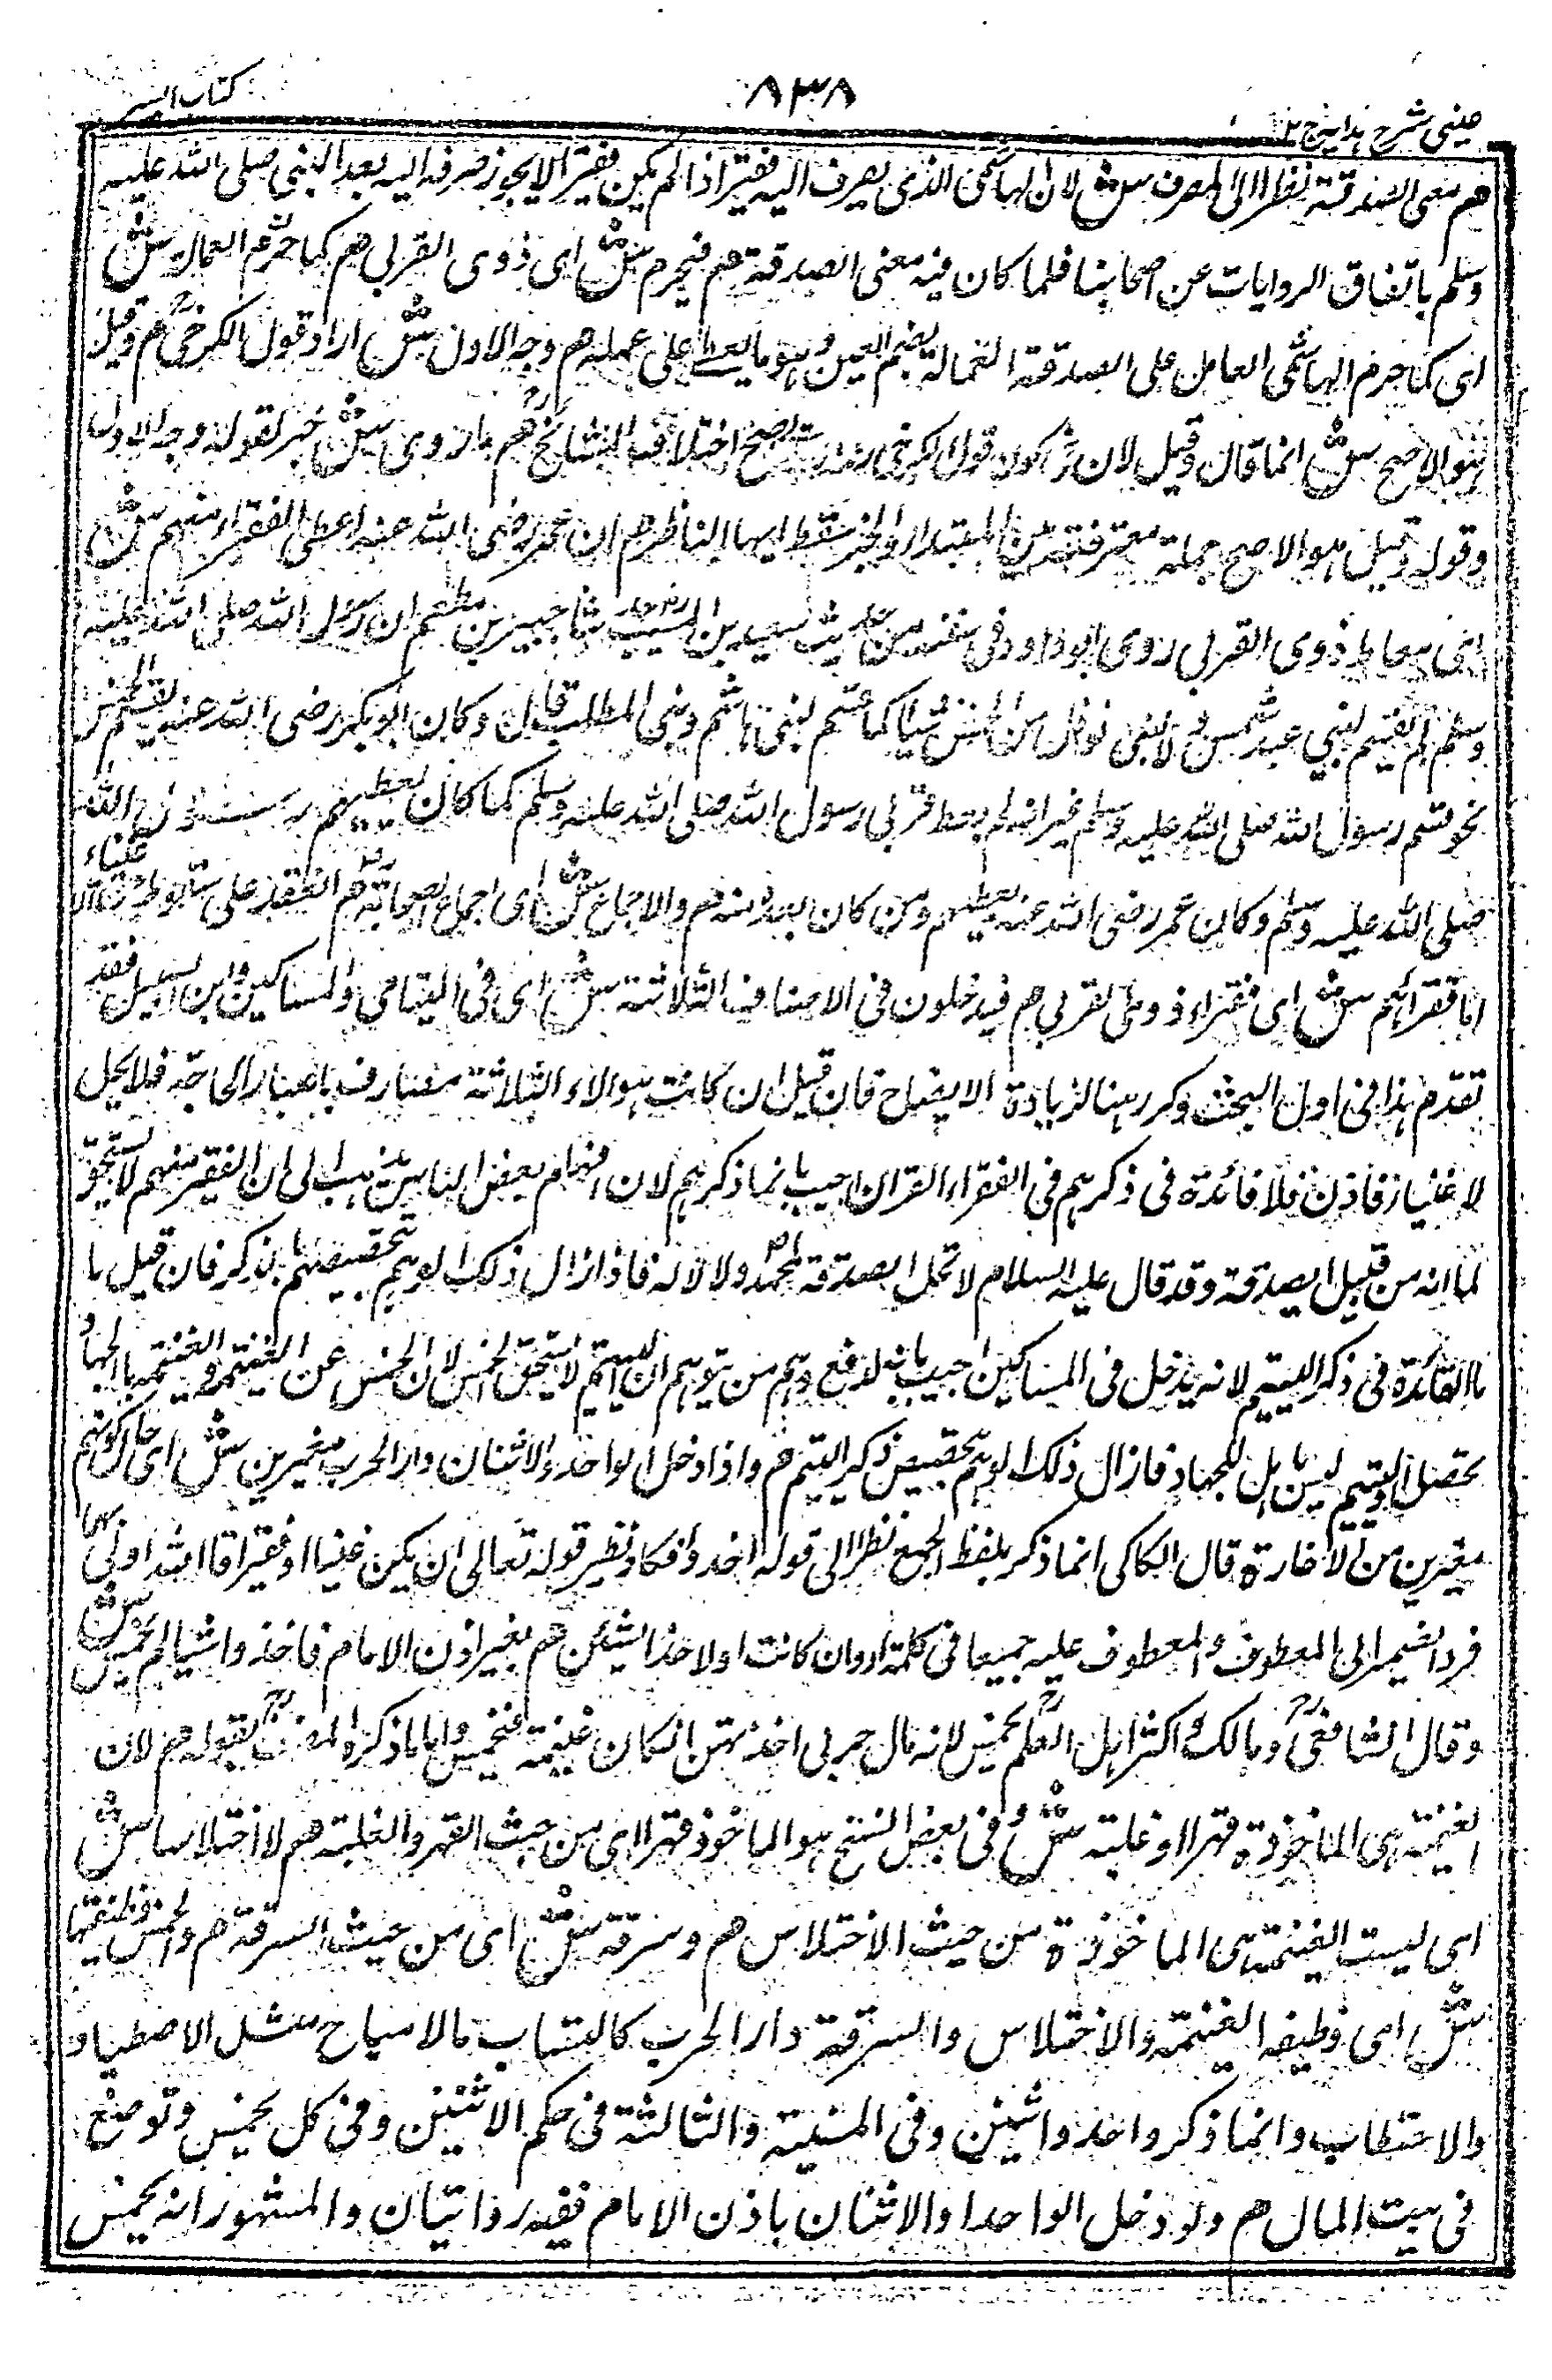 عینی شرح ہدایہ ج ٢
٨٣٨
کتاب السیر
هم معنى الصدقة نظرا الى المصرف ش لان الهاشمى الذى يصرف اليه فقير اذا لم يكن فقيرا لا يجوز صرفه اليه بعد النبى صلى الله عليه
وسلم باتفاق الروايات عن اصحابنا فلما كان فيه معنى الصدقة هم فيحرم ش اى ذوى القربى هم كما حرم العمالة ش
اى كما حرم الهاشمى العامل على الصدقة العمالة بضم العين وهو ما يعطى على عمله هم وجه الاول ش اراد قول الكرخى هم وقيل
هو الاصح ش انما قال وقيل لان كون قول الكرخى اصح اختلاف المشائخ هم ما روى ش خبر لقوله وجه الاول
وقوله وقيل هو الاصح جملة معترضة بين المبتدا والخبر ايها الناظر هم ان عمر رضى الله عنه اعطى الفقراء منهم ش
اى ذوى القربى روى ابو داود فى سننه من حديث سعيد بن المسيب ثنا جبير بن مطعم ان رسول الله صلى الله عليه
وسلم لم يقسم لبنى عبد شمس ولا لبنى نوفل من الخمس شيئا كما قسم لبنى هاشم وبنى المطلب قال وكان ابو بكر رضى الله عنه يقسم الخمس
نحو قسم رسول الله صلى الله عليه وسلم غير انه لم يعط قربى رسول الله صلى الله عليه وسلم كما كان يعطيهم رسول الله
صلى الله عليه وسلم وكان عمر رضى الله عنه يعطيهم ومن كان بعده منه هم والاجماع ش اى اجماع الصحابة هم انعقد على سقوط حق الاغنياء
اما فقراءهم ش اى فقراء ذوى القربى هم فيدخلون فى الاصناف الثلاثة ش اى فى اليتامى والمساكين وابن السبيل فقد
تقدم هذا فى اول البحث وكرر هنا لزيادة الايضاح فان قيل ان كانت هؤلاء الثلاثة مصارف باعتبار الحاجة فلا يحل
لاغنياء فاذن فلا فائدة فى ذكرهم فى الفقراء القرآن اجيب بانما ذكرهم لان افهام بعض الناس يذهب الى ان الفقير منهم لا يستحق
لما انه من قبيل الصدقة وقد قال عليه السلام لا تحل الصدقة لمحمد ولا لاله فاذا زال ذلك الوهم بتخصيصهم بالذكر فان قيل ما
ما الفائدة فى ذكر اليتيم لانه يدخل فى المساكين اجيب بانه لدفع وهم من يتوهم ان اليتيم لا يستحق الخمس لان الخمس عن الغنيمة والغنيمة بالجهاد
تحصل واليتيم ليس باهل للجهاد فازال ذلك الوهم بتخصيص ذكر اليتيم هم واذا دخل الواحد والاثنان دار الحرب مغيرين ش اى حال كونهم
مغيرين من الاغارة قال الكاكى انما ذكر بلفظ الجمع نظرا الى قوله اخذوا فكان نظير قوله تعالى ان يكن غنيا او فقيرا فالله اولى بهما
فرد الضمير الى المعطوف والمعطوف عليه جميعا فى كلمة او وان كانت او لاحد الشيئين هم بغير اذن الامام فاخذوا شيئا لم يخمس ش
وقال الشافعى ومالك واكثر اهل العلم يخمس لانه مال حربى اخذ قهرا فكان غنيمة فيخمس ولنا ما ذكره المصنف بقوله هم لان
الغنيمة هى الماخوذة قهرا او غلبة ش وفى بعض النسخ هو الماخوذ قهرا اى من حيث القهر والغلبة هم لا اختلاسا ش
اى ليست الغنيمة هى الماخوذة من حيث الاختلاس هم وسرقة ش اى من حيث السرقة هم والخمس وظيفتها
ش اى وظيفة الغنيمة والاختلاس والسرقة دار الحرب كالتساب مالا مباح مثل الاصطياد
والاحتطاب وانما ذكر واحد واثنين وفى المنية والثالثة فى حكم الاثنين وفى كل يخمس وتوضع
فى بيت المال هم ولو دخل الواحد او الاثنان باذن الامام ففيه روايتان والمشهور انه يخمس